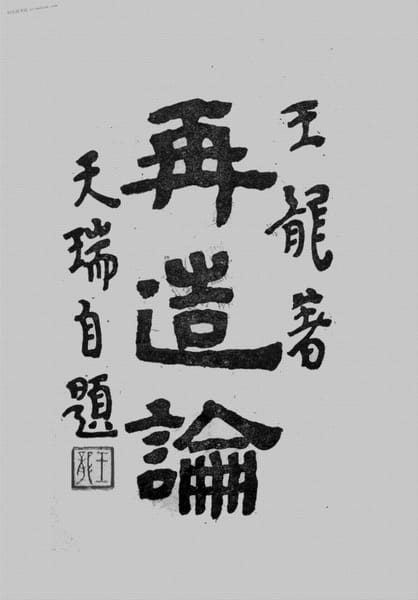 王龍著
再造論
天瑞自題
王龍